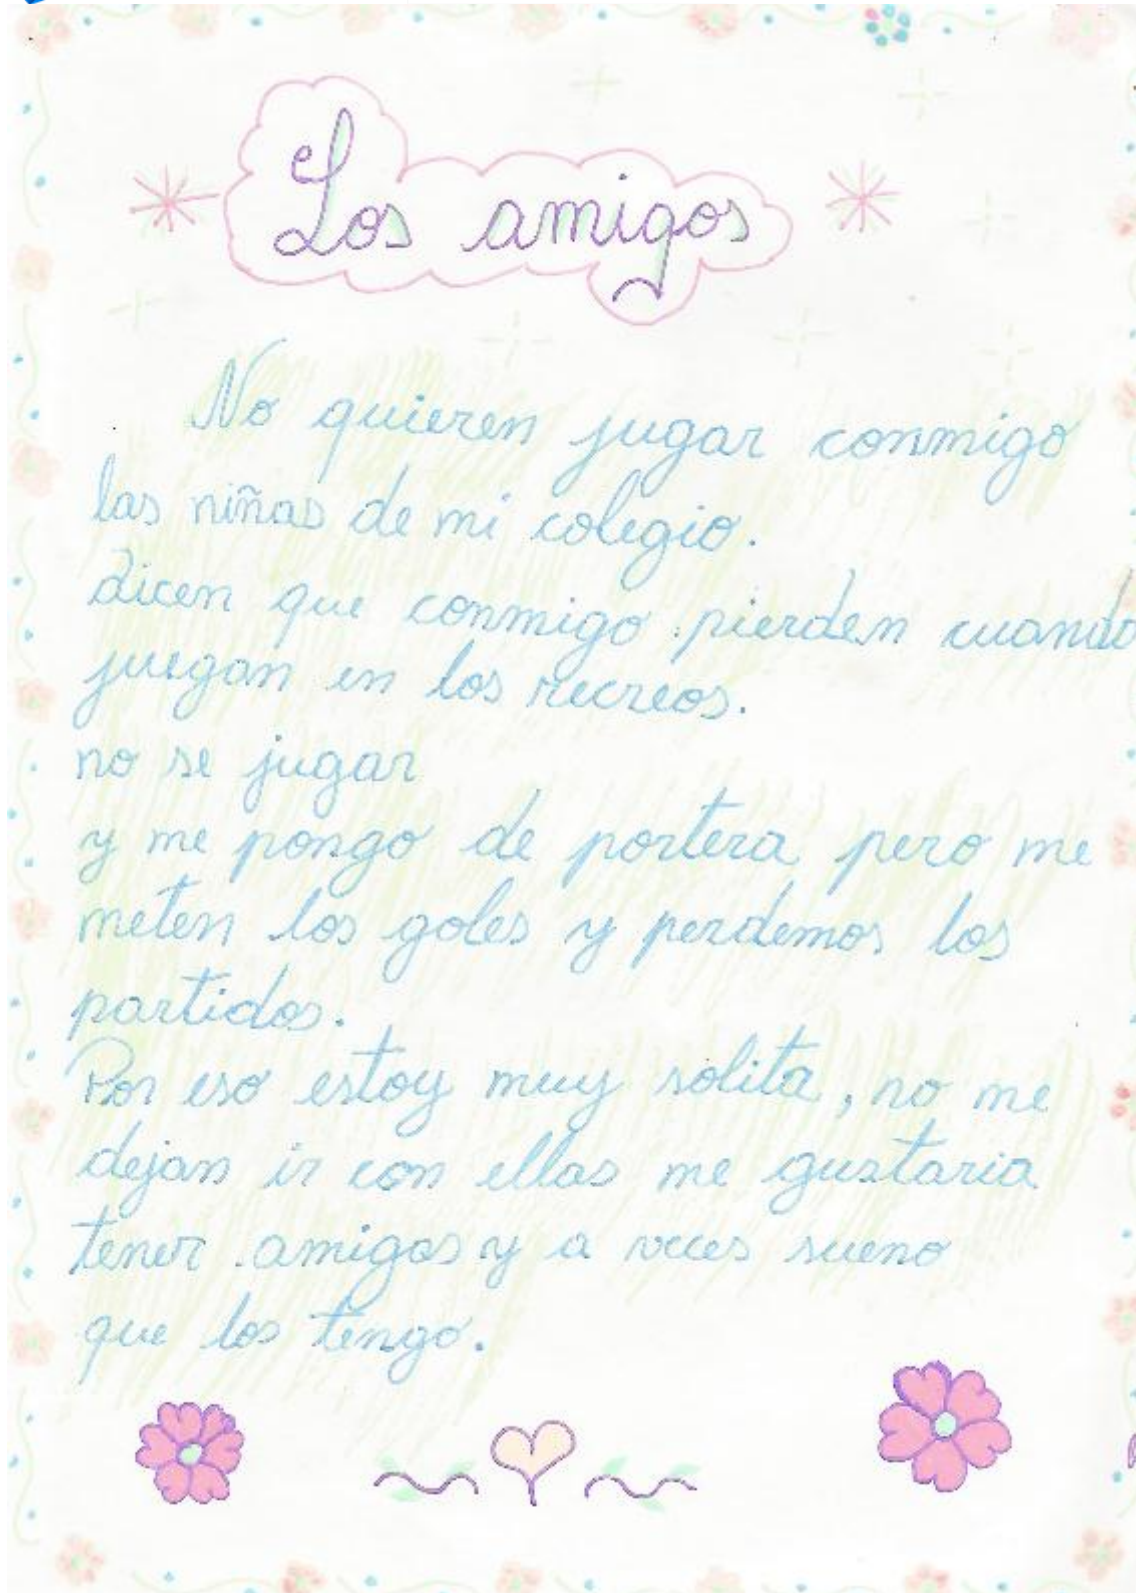 Los amigos
No quieren jugar conmigo
las niñas de mi colegio.
dicen que conmigo pierden cuando
juegan en los recreos.
no se jugar
y me pongo de portera pero me
meten los goles y perdemos los
partidos.
Por eso estoy muy solita, no me
dejan ir con ellas me gustaria
tener amigos y a veces sueno
que los tengo.